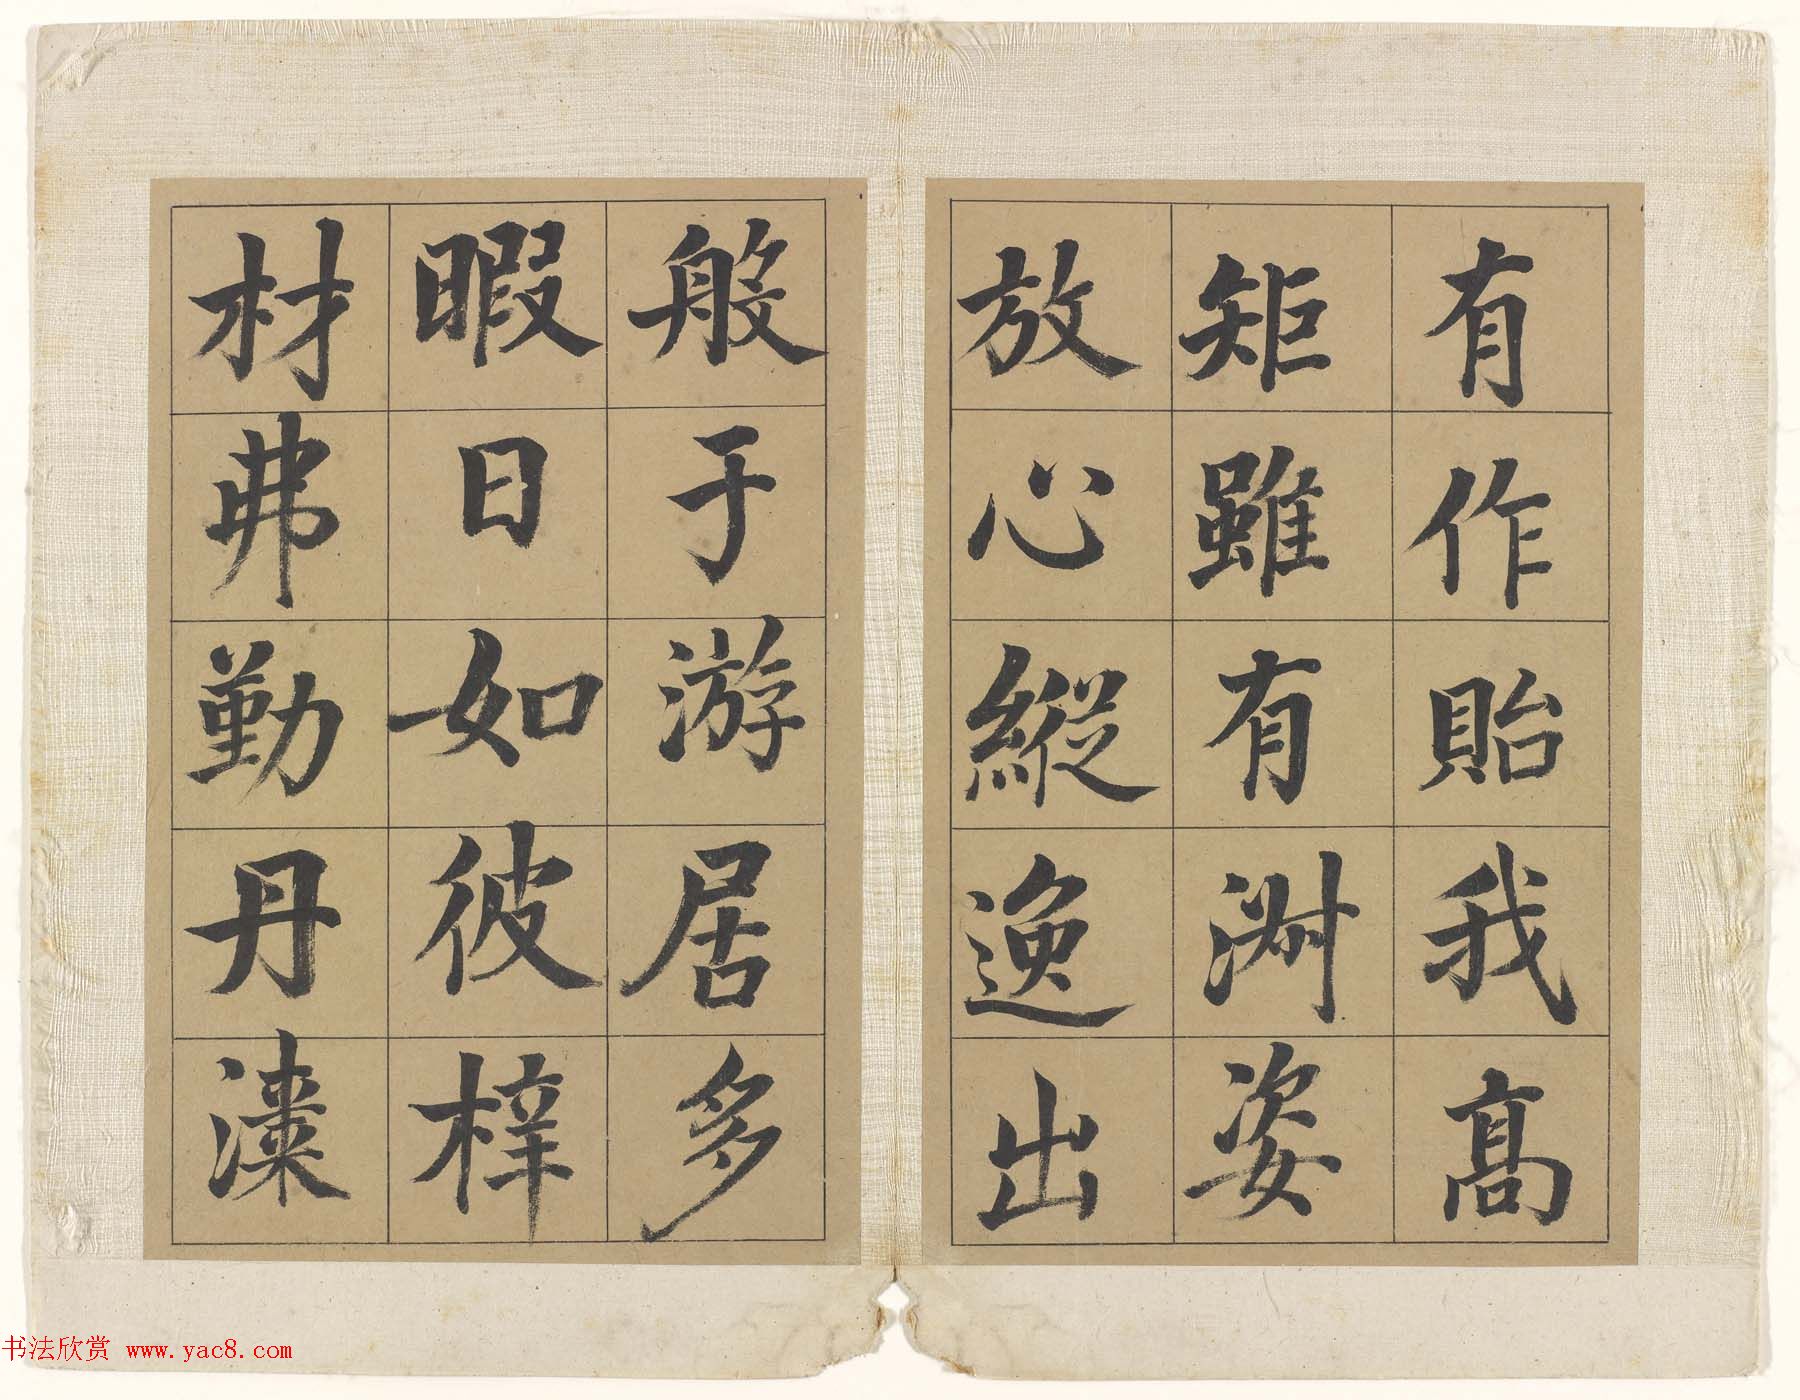 有作貽我髙
矩雖有淵姿
放心縱逸出
般于游居多
暇日如彼梓
材弗勤丹漆
书法欣赏 www.yac8.com